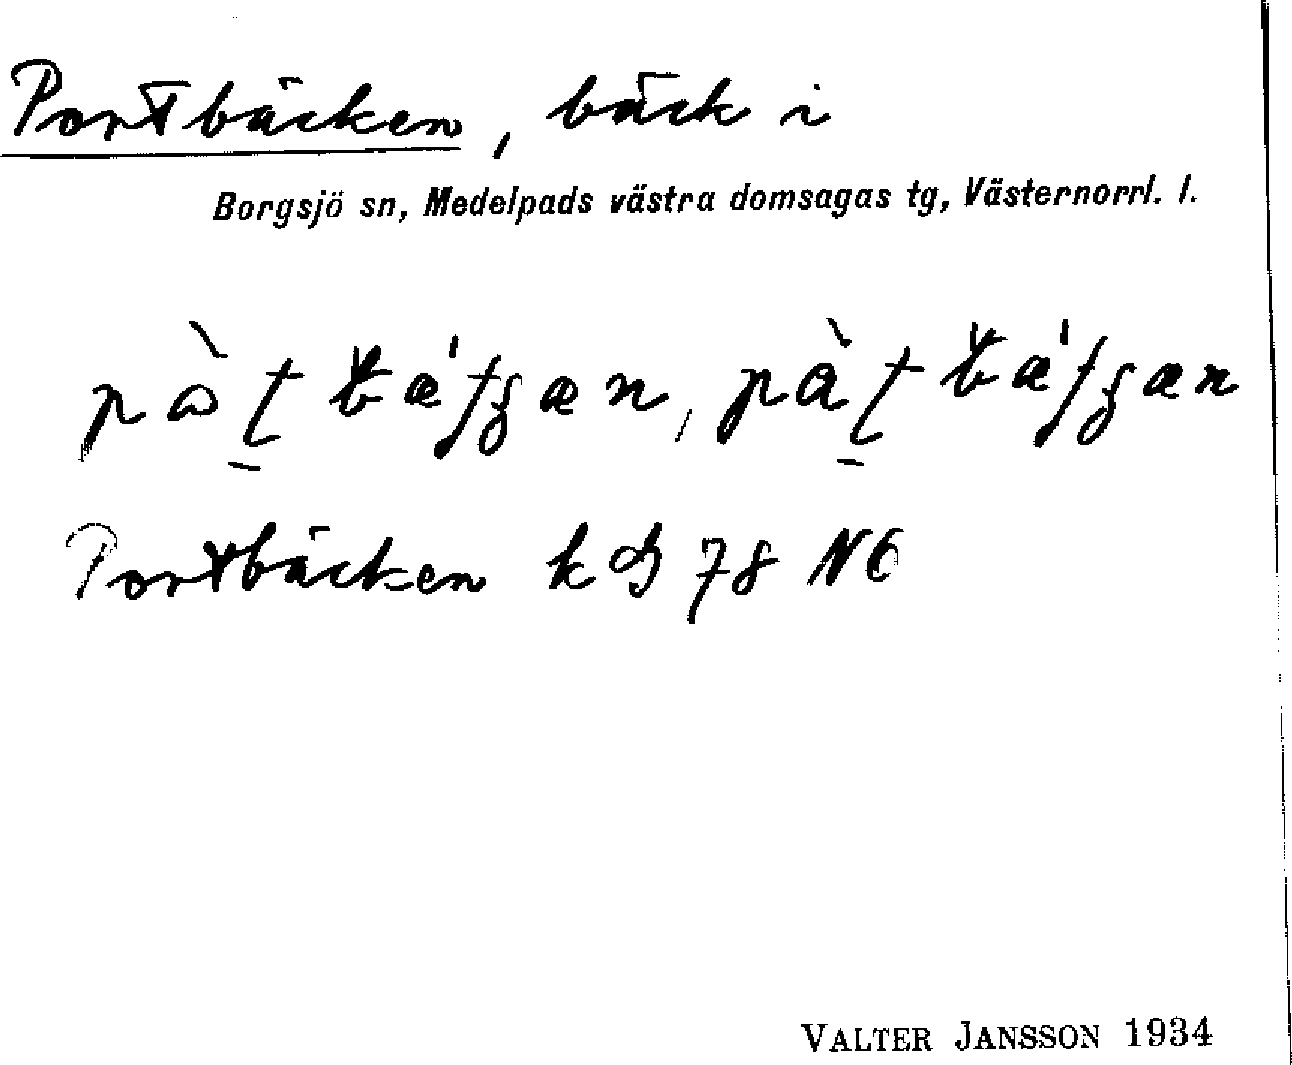 Portbäcken, bäck i
Borgsjö sn, Medelpads västra domsagas tg, Västernorrl. l.
Portbäcken k 78 NO
VALTER JANSSON 1934